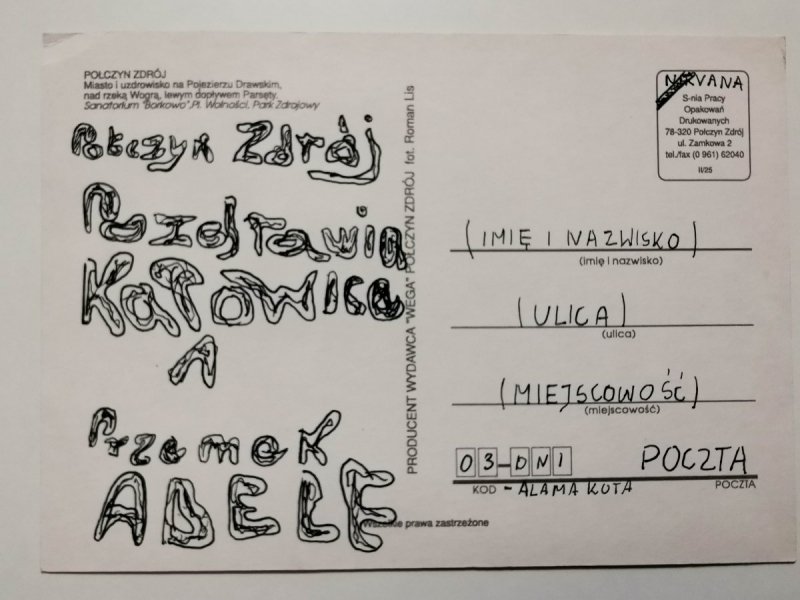 POŁCZYN ZDRÓJ
Miasto i uzdrowisko na Pojezierzu Drawskim,
nad rzeką Wogrą, lewym dopływem Parsęty.
Sanatorium "Borkowo", Pl. Wolności, Park Zdrojowy
Połczyn Zdrój
Pozdrawia
Katowica
A
Przemek
ADELE
PRODUCENT WYDAWCA "WEGA" POŁCZYN ZDRÓJ fot. Roman Lis
NIRVANA
S-nia Pracy
Opakowań
Drukowanych
78-320 Połczyn Zdrój
ul. Zamkowa 2
tel./fax (0 961) 62040
II/25
(IMIĘ I NAZWISKO)
(imię i nazwisko)
(ULICA)
(ulica)
(MIEJSCOWOŚĆ)
(miejscowość)
03-DNI POCZTA
KOD - ALAMA KOTA POCZTA
Wszelkie prawa zastrzeżone